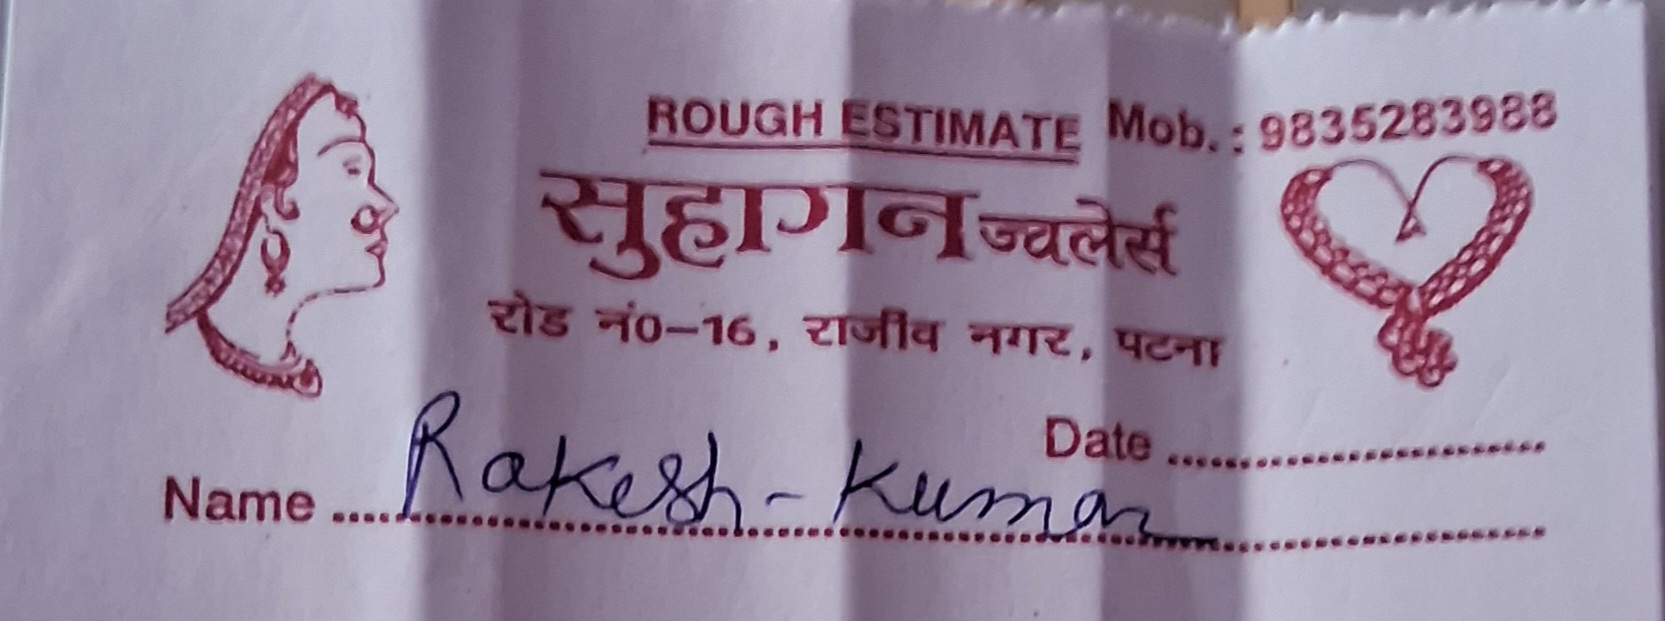 ROUGH ESTIMATE Mob. : 9835283988
सुहागन ज्वलेर्स
रोड नं0-16, राजीव नगर, पटना
Date ........................
Name .... Rakesh - Kumar ........................